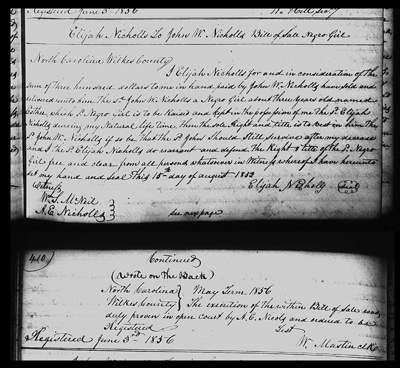 Registered June 3d 1856
Elijah Nicholls To John W. Nicholls Bill of Sale Negro Girl
North Carolina Wilkes County
I Elijah Nicholls for and in consideration of the
sum of three hundred dollars to me in hand paid by John W. Nicholls have sold and
delivered unto him the Sd John W. Nicholls a Negro Girl about three years old named
which Sd Negro Girl is to be Raised and kept in the possession of me the Sd Elijah
Nicholls during my Natural life time, then the Right and title is to vest in him the
Sd John W. Nicholls if so be that the Sd John should Still Survive after my decease
and I the Sd Elijah Nicholls do warrant and defend the Right & title of the Sd Negro
Girl free and clear from all persons whatsoever in Witness whereof I have hereunto
set my hand and Seal This 18th day of august 1852
Witness Elijah Nicholls Seal
Wm. S. McNeil
A. E. Nicholls see next page
410
Continued
(Wrote on The Back)
North Carolina May Term 1856
Wilkes County The execution of the within Bill of Sale
duly proven in open court by A. E. Nicols and ordered to be
Registered Test
Registered June 3rd 1856 W. Mastin clk